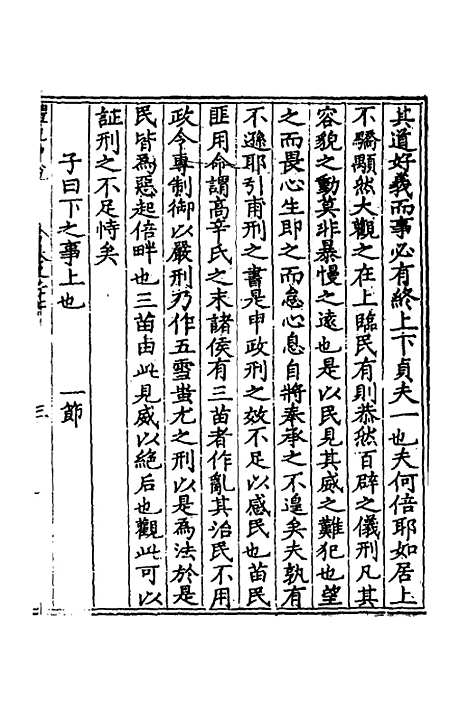 其道好義而事必有終上下貞夫一也夫何倍耶如居上
不驕顒然大觀之在上臨民有則恭然百辟之儀刑凡其
容貌之動莫非暴慢之遠也是以民見其威之難犯也望
之而畏心生即之而怠心息自將奉承之不遑矣夫孰有
不遜耶引甫刑之書是申政刑之效不足以感民也苗民
匪用命謂高辛氏之末諸侯有三苗者作亂其治民不用
政令專制御以嚴刑乃作五雪蚩尤之刑以是為法於是
民皆為惡起倍畔也三苗由此見威以絕后也觀此可以
証刑之不足恃矣
子曰下之事上也 一節
三